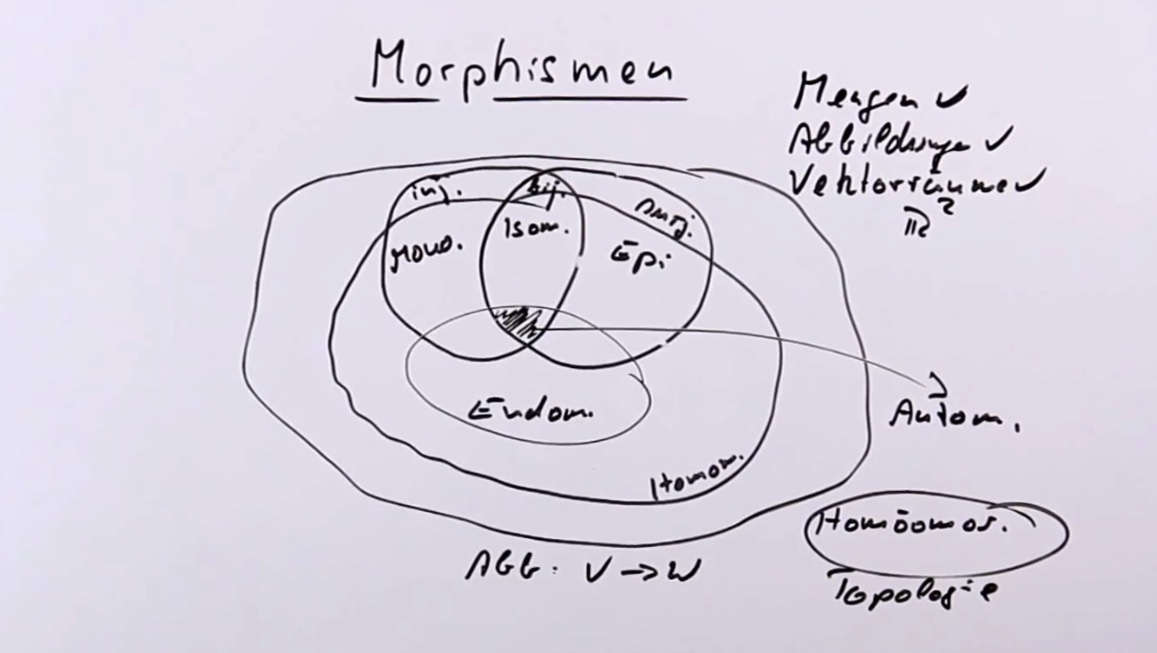 Morphismen
Mengen ✓
Abbildungen ✓
Vektorräume ✓
ℝ²
inj.
bij.
surj.
Mono.
Isom.
Epi
Endom.
Autom.
Homom.
Homöomor.
Topologie
Abb. V → W